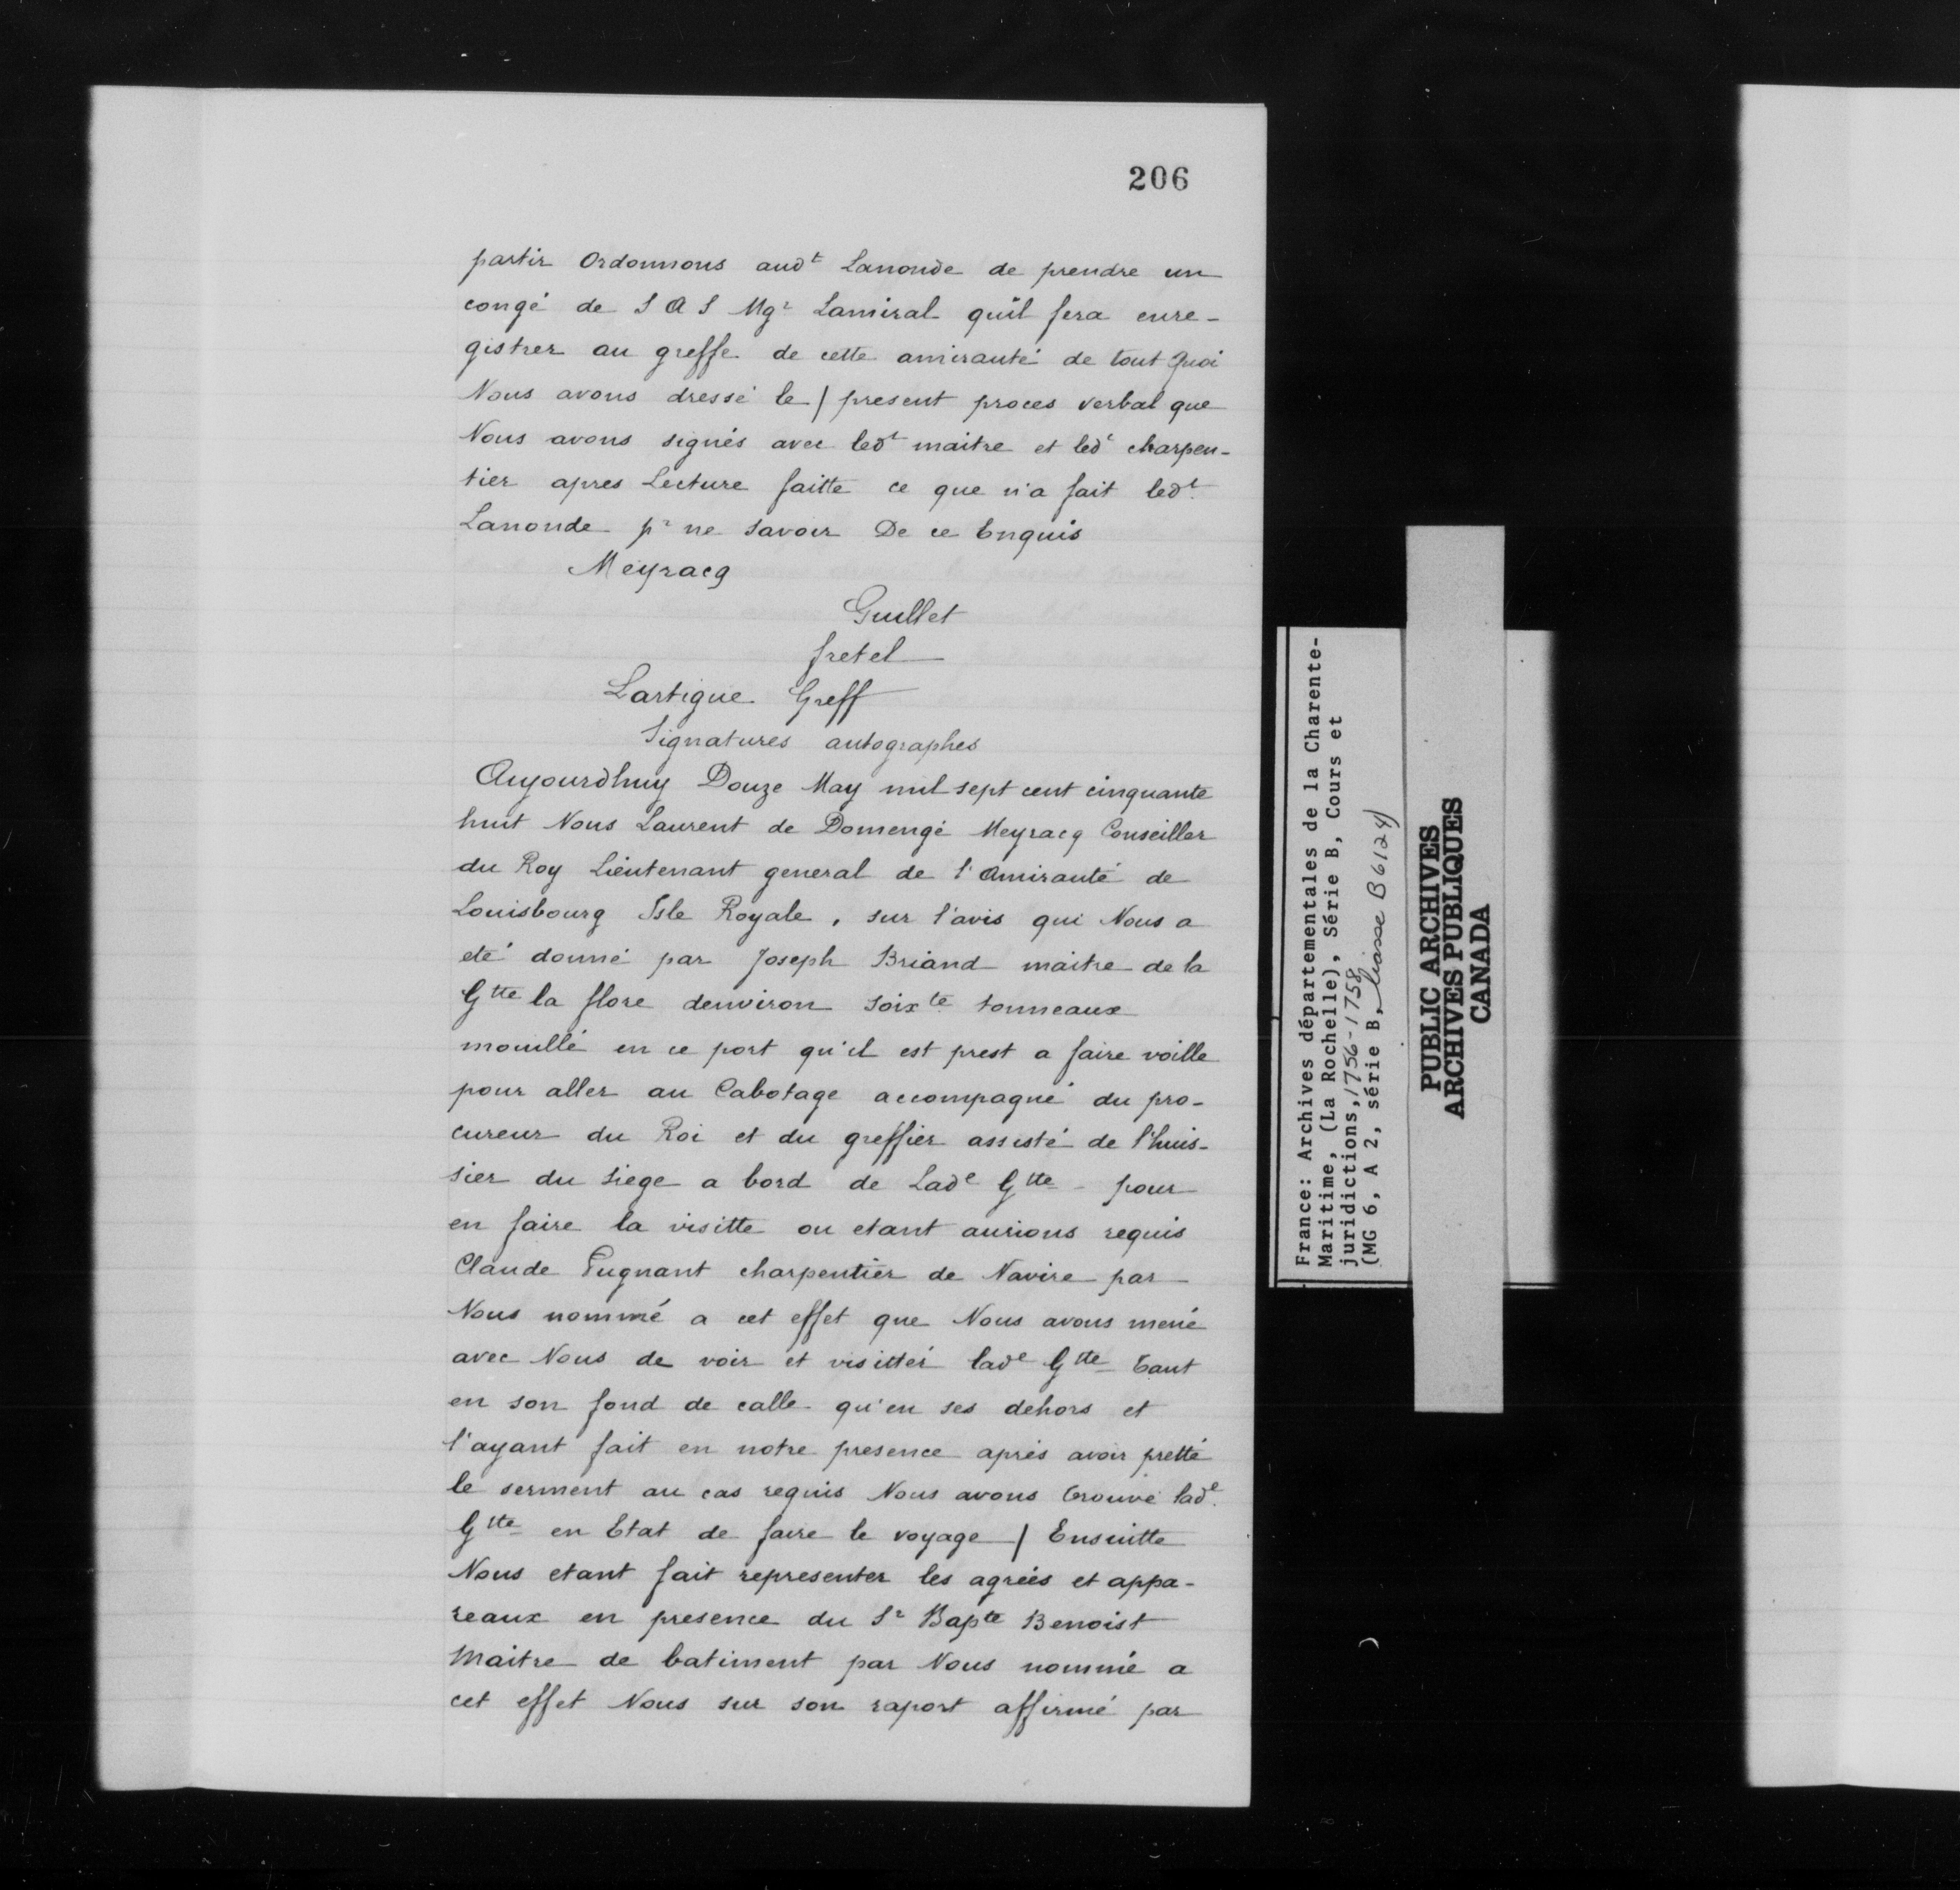 206
partir Ordonnons aud^t Lanonde de prendre un
congé de S A S Mg^r Lamiral quil fera enre-
gistrer au greffe de cette amirauté de tout Quoi
Nous avons dressé le | present proces verbal que
Nous avons signés avec led^t maitre et led^t charpen-
tier apres Lecture faitte ce que n'a fait led^t
Lanonde p^r ne savoir De ce Enquis
Meyracq
Guillet
fretel
Lartigue Greff
Signatures autographes
Aujourdhuy Douze May mil sept cent cinquante
huit Nous Laurent de Domengé Meyracq Conseiller
du Roy Lieutenant general de l'Amirauté de
Louisbourg Isle Royale, sur l'avis qui Nous a
eté donné par Joseph Briand maitre de la
G^tte la flore denviron soix^te tonneaux
mouillé en ce port qu'il est prest a faire voille
pour aller au Cabotage accompagné du pro-
cureur du Roi et du greffier assisté de l'huis-
sier du siege a bord de Lad^e G^tte pour
en faire la visitte ou etant aurions requis
Claude Pugnant charpentier de Navire par
Nous nommé a cet effet que Nous avons mené
avec Nous de voir et visitter lad^e G^tte tant
en son fond de calle qu'en ses dehors et
l'ayant fait en notre presence aprés avoir pretté
le serment au cas requis Nous avons trouvé lad^e
G^tte en Etat de faire le voyage | Ensuitte
Nous etant fait representer les agréés et appa-
reaux en presence du S^r Bap^te Benoist
Maitre de batiment par Nous nommé a
cet effet Nous sur son raport affirmé par
France: Archives départementales de la Charente-
Maritime, (La Rochelle), Série B, Cours et
juridictions, 1756-1758
(MG 6, A 2, série B, liasse B6124)
PUBLIC ARCHIVES
ARCHIVES PUBLIQUES
CANADA